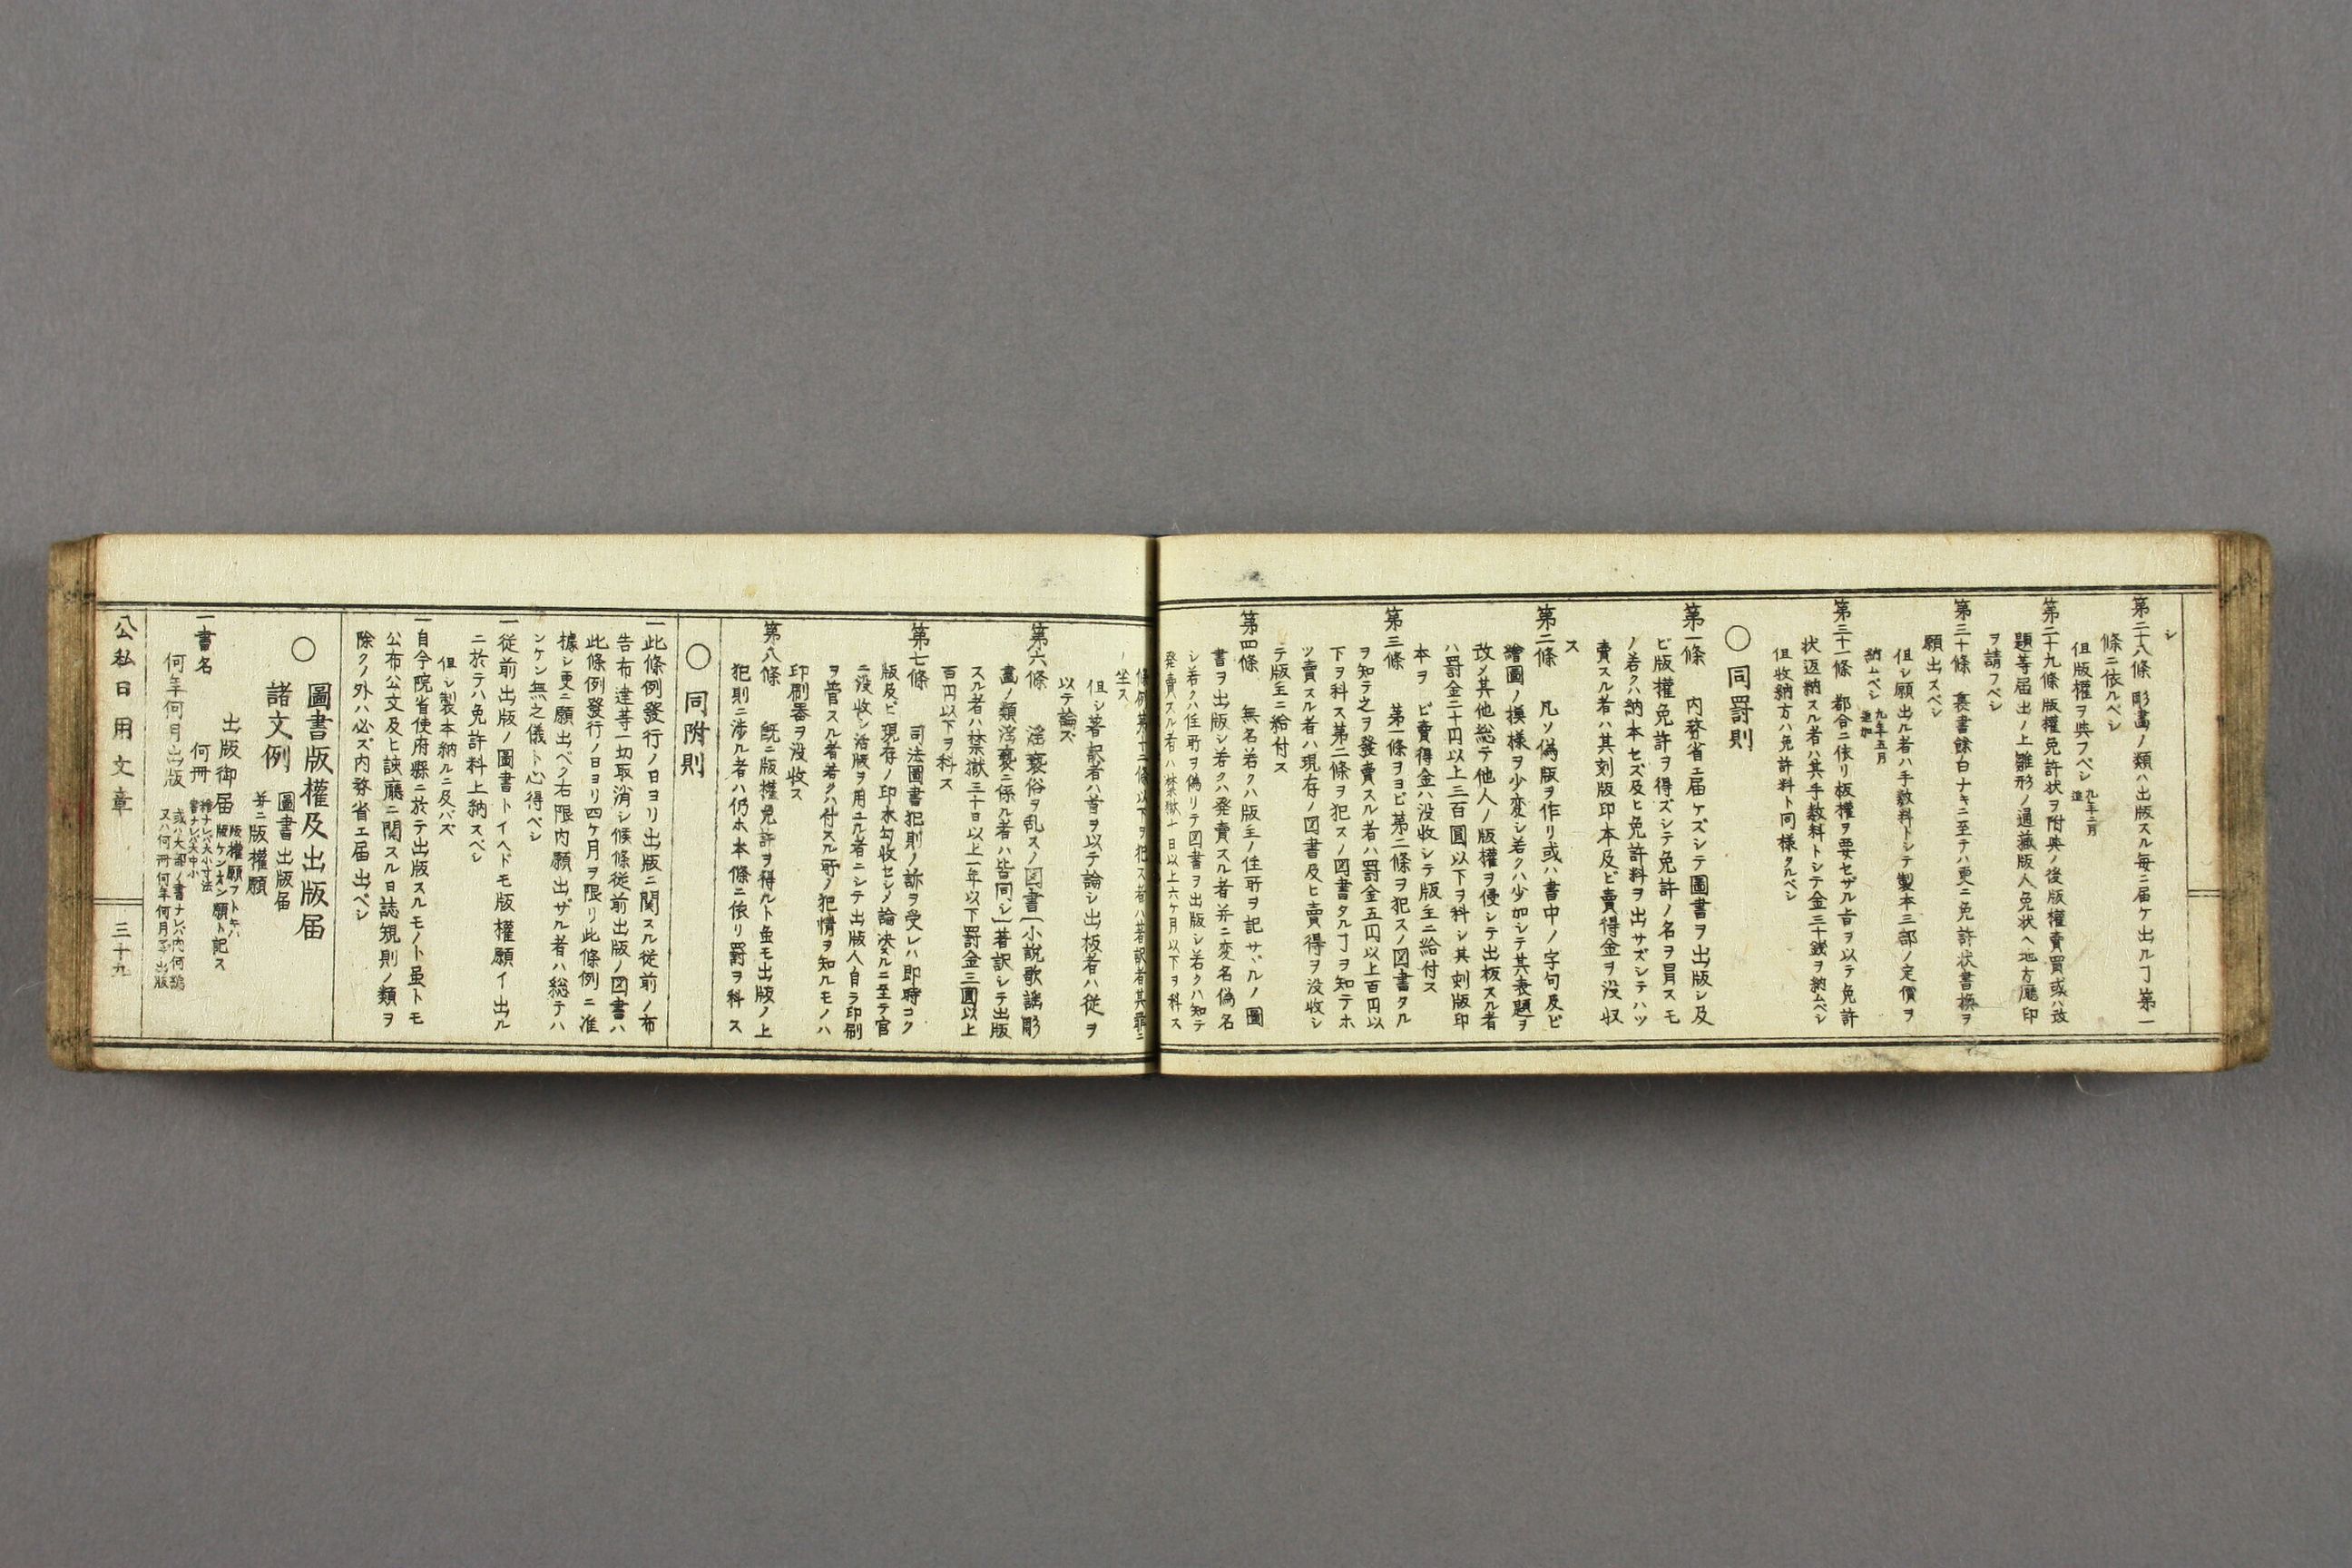 シ
第二十八條 彫畵ノ類ハ出版スル毎ニ届ケ出ルヿ第一
條ニ依ルベシ
但版權ヲ與フベシ 九年二月追
第二十九條 版權免許状ヲ附與ノ後版權賣買或ハ改
題等届出ノ上雛形ノ通藏版人免状ヘ地方廳印
ヲ請フベシ
第三十條 裏書餘白ナキニ至テハ更ニ免許状書換ヲ
願出スベシ
但シ願出ル者ハ手数料トシテ製本三部ノ定價ヲ
納ムベシ 九年五月追加
第三十一條 都合ニ依リ板權ヲ要セザル旨ヲ以テ免許
状返納スル者ハ其手数料トシテ金三十錢ヲ納ムベシ
但收納方ハ免許料ト同様タルベシ
○同罰則
第一條 内務省エ届ケズシテ圖書ヲ出版シ及
ビ版權免許ヲ得ズシテ免許ノ名ヲ冐スモ
ノ若クハ納本セズ及ヒ免許料ヲ出サズシテハツ
賣スル者ハ其刻版印本及ビ賣得金ヲ没収
ス
第二條 凡ソ偽版ヲ作リ或ハ書中ノ字句及ビ
繪圖ノ模様ヲ少変シ若クハ少加シテ其表題ヲ
改メ其他総テ他人ノ版權ヲ侵シテ出板スル者
ハ罰金二十円以上三百圓以下ヲ科シ其刻版印
本ヲヨビ賣得金ハ没收シテ版主ニ給付ス
第三條 第一條ヲヨビ第二條ヲ犯スノ図書タル
ヲ知テ之ヲ發賣スル者ハ罰金五円以上百円以
下ヲ科ス第二條ヲ犯スノ図書タルヿヲ知テホ
ツ賣スル者ハ現存ノ図書及ヒ賣得ヲ没收シ
テ版主ニ給付ス
第四條 無名若クハ版主ノ住所ヲ記サヾルノ圖
書ヲ出版シ若クハ発賣スル者并ニ変名偽名
シ若クハ住所ヲ偽リテ図書ヲ出版シ若クハ知テ
発賣スル者ハ禁獄十日以上六ケ月以下ヲ科ス
條例第十二條以下ヲ犯ス者ハ著訳者其罪ニ
坐ス
但シ著記者ハ首ヲ以テ論シ出板者ハ従ヲ
以テ論ズ
第六條 淫褻俗ヲ乱スノ図書〔小説歌謡彫
畵ノ類淫褻ニ係ル者ハ皆同シ〕著訳シテ出版
スル者ハ禁獄三十日以上一年以下罰金三圓以上
百円以下ヲ科ス
第七條 司法圖書犯則ノ訴ヲ受レハ即時コク
版及ビ現存ノ印本勾收セシメ論决スルニ至テ官
ニ没收シ活版ヲ用ユル者ニシテ出版人自ラ印刷
ヲ管スル者若クハ付スル所ノ犯情ヲ知ルモノハ
印刷器ヲ没收ス
第八條 既ニ版權免許ヲ得ルト虽モ出版ノ上
犯則ニ渉ル者ハ仍ホ本條ニ依リ罰ヲ科ス
○同附則
一此條例發行ノ日ヨリ出版ニ関スル従前ノ布
告布達等一切取消シ候條従前出版ノ図書ハ
此條例發行ノ日ヨリ四ケ月ヲ限リ此條例ニ准
據シ更ニ願出ベク右限内願出ザル者ハ総テハ
ンケン無之儀ト心得ベシ
一従前出版ノ圖書トイヘドモ版權願イ出ル
ニ於テハ免許料上納スベシ
但シ製本納ルニ及バズ
一自今院省使府縣ニ於テ出版スルモノト虽トモ
公布公文及ヒ該廳ニ関スル日誌規則ノ類ヲ
除クノ外ハ必ズ内務省エ届出ベシ
○圖書版權及出版届
諸文例 圖書出版届
并ニ版權願
出版御届 版權願フトキハ版ケンオン願ト記ス
一書名 何冊 繪ナレバ大小寸法書ナレバ大中小或ハ大部ノ書ナレバ内何編又ハ何冊何年何月迄出版
何年何月出版
公私日用文章 三十九